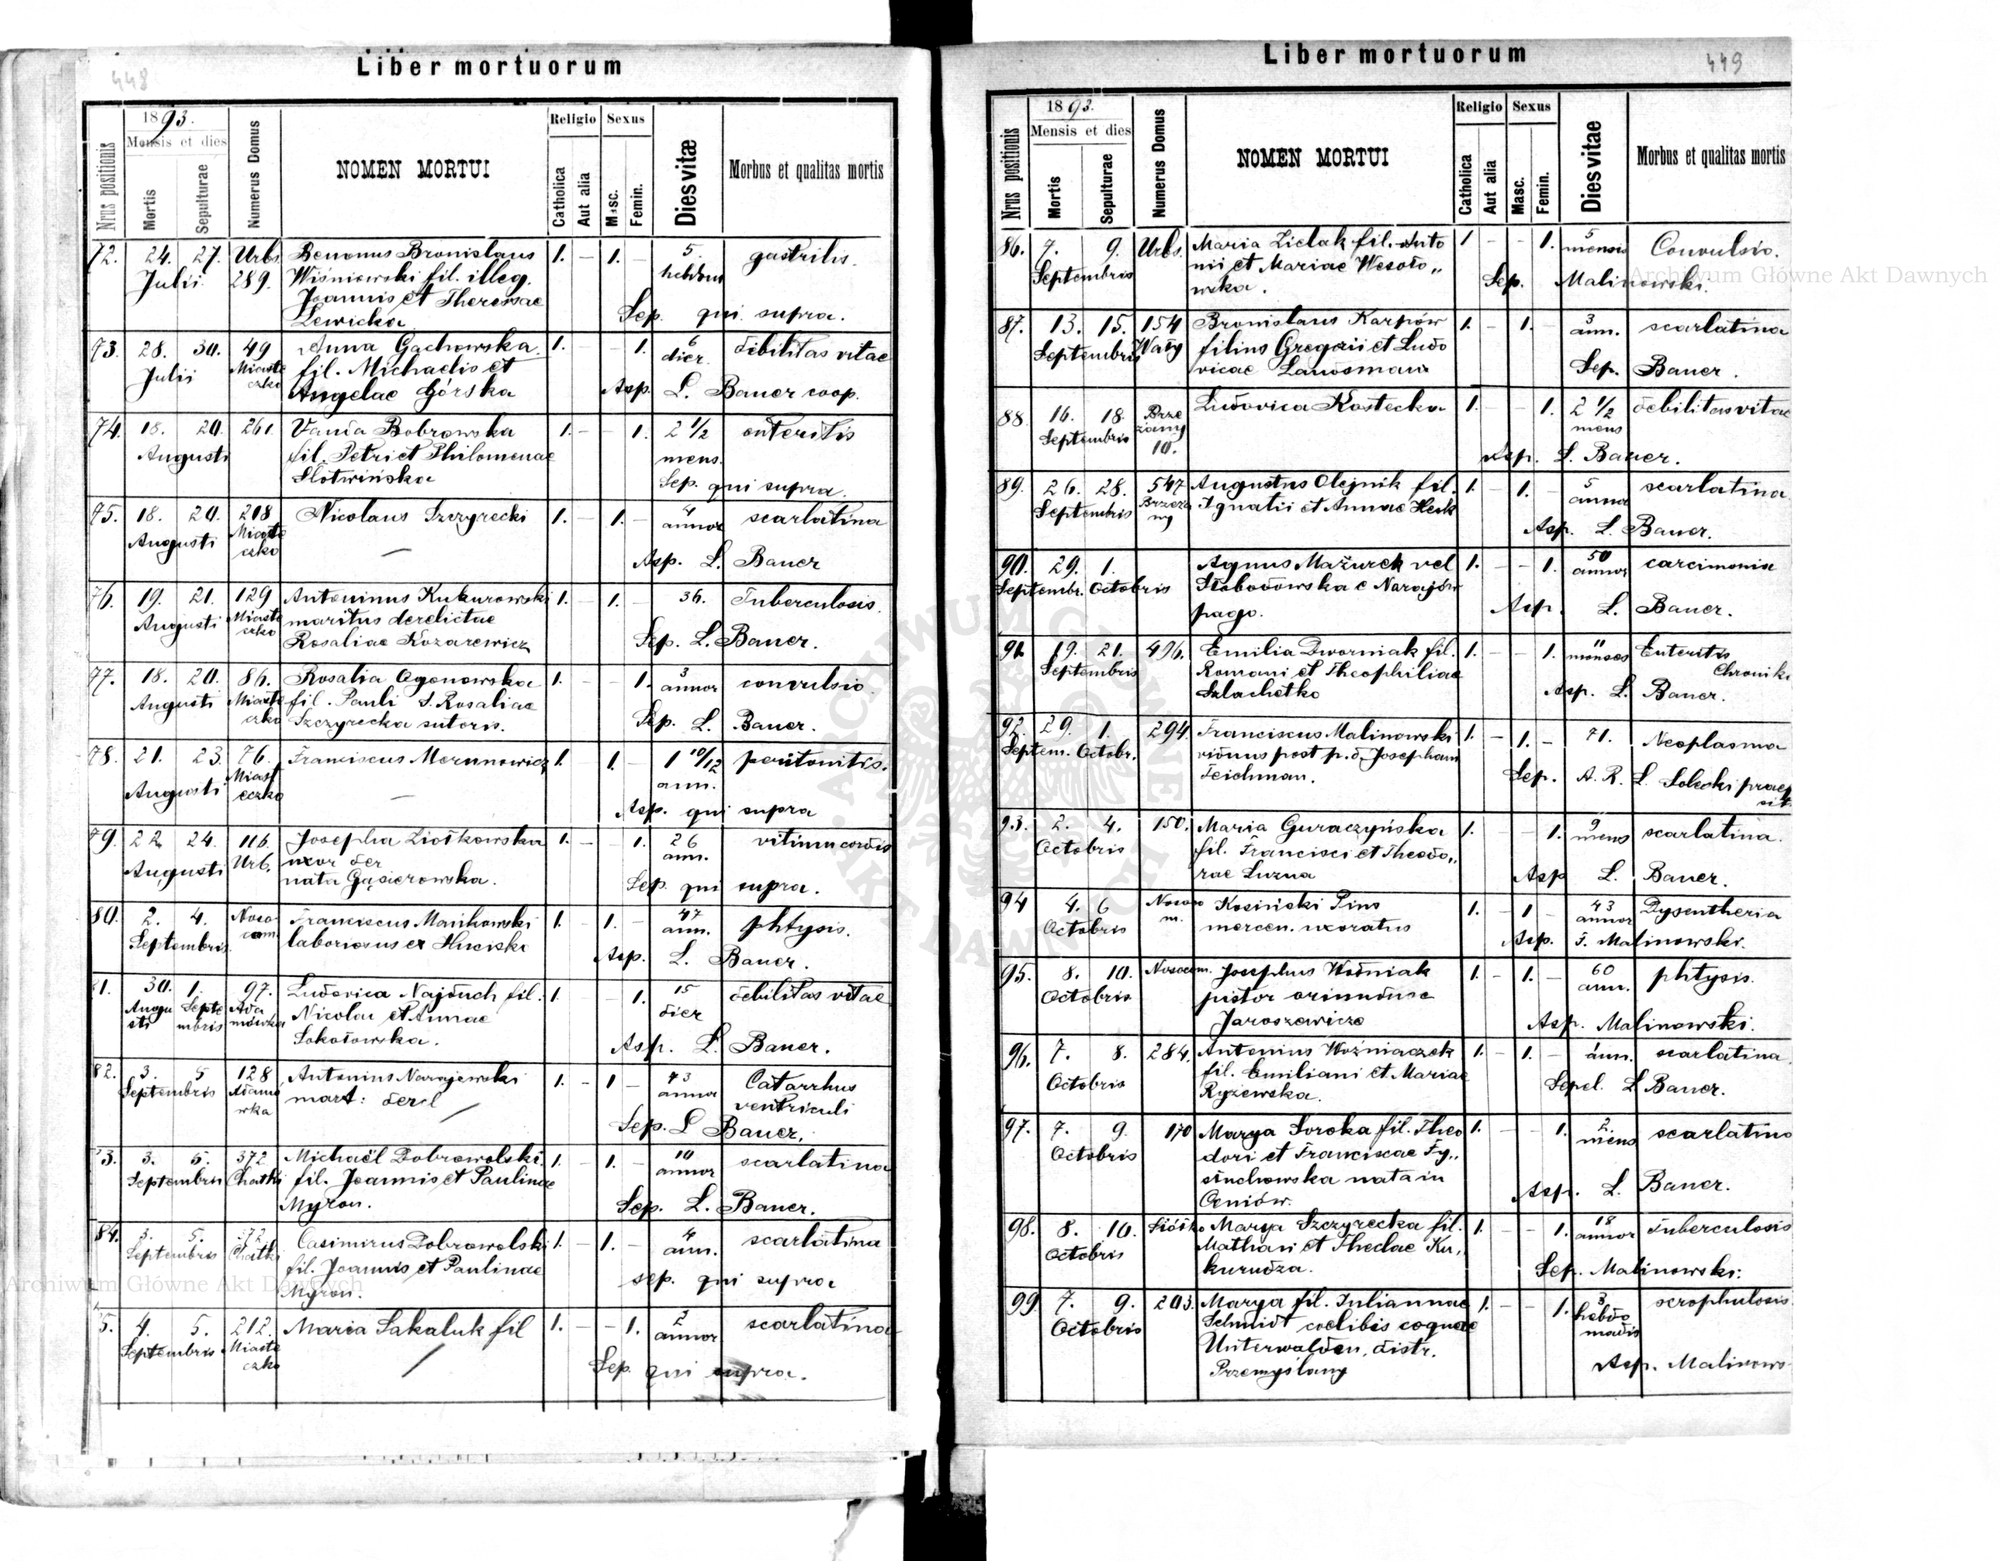 448
Liber mortuorum
Nrus positionis
1893.
Mensis et dies
Mortis
Sepulturae
Numerus Domus
NOMEN MORTUI
Religio
Catholica
Aut alia
Sexus
Masc.
Femin.
Dies vitæ
Morbus et qualitas mortis
72. 24. 27. Urbs Benonus Bronislaus 1. – 1. – 5. gastritis.
Julii 289. Wiśniowski fil. illeg. hebdom
Joannis et Theresiae
Lewicka Sep. qui supra.
73. 28. 30. 49 Anna Gachowska 1. – – 1. 6 debilitas vitae
Julii Miaste fil. Michaelis et dier.
czko Angelae Górska Asp. L. Bauer coop.
74. 18. 20. 261. Vania Bobrowska 1. – – 1. 2 1/2 enteritis
Augusti fil. Petri et Philomenae mens.
Slotwińska Sep. qui supra.
75. 18. 20. 208 Nicolaus Szczyrecki 1. – 1. – 4 scarlatina
Augusti Miaste annor
czko Asp. L. Bauer
76. 19. 21. 129 Antoninus Kukurowski 1. – 1. – 36. Tuberculosis.
Augusti Miaste maritus derelictae
czko Rosaliae Kozarewicz Sep. L. Bauer.
77. 18. 20. 86. Rosalia Ogonowska 1. – – 1. 3 convulsio
Augusti Miaste fil. Pauli S. Rosaliae annor
czko Szczyrecka sutoris. Sep. L. Bauer.
78. 21. 23. 76. Franciscus Merunowicz 1. 1. – 1 10/12 peritonitis.
Augusti Miast ann.
eczko Asp. qui supra
79. 22 24. 116. Josepha Ziołkowska 1. – 1. 26 vitium cordis
Augusti Urb. uxor der ann.
nata Gąsierowska. Sep. qui supra.
80. 2. 4. Noso Franciscus Manikowski 1. – 1. – 47 phtysis.
Septembris com. laboriosus ex Hucisko ann.
Asp. L. Bauer.
81. 30. 1. 97. Ludovica Najduch fil. 1. – 1. 15 debilitas vitae
Augu Septe Ada Nicolai et Annae dier
sti mbris mówka Sokołowska. Asp. L. Bauer.
82. 3. 5 128 Antonius Narajewski 1. – 1 – 43 Catarrhus
Septembris Adamó mart: derel annor ventriculi
wka Sep. L Bauer.
83. 3. 5. 372 Michaël Dobrowolski 1. – 1. – 10 scarlatina
Septembris Chatki fil. Joannis et Paulinae annor
Myron. Sep. L. Bauer.
84. 3. 5. 372 Casimirus Dobrowolski 1. – 1. – 4 scarlatina
Septembris Chatki fil. Joannis et Paulinae ann.
Myron. sep. qui supra
5. 4. 5. 212. Maria Sakaluk fil 1. – – 1. 2 scarlatina
Septembris Miaste annor
czko Sep. qui supra.
Archiwum Główne Akt Dawnych
449
Liber mortuorum
Nrus positionis
1893.
Mensis et dies
Mortis
Sepulturae
Numerus Domus
NOMEN MORTUI
Religio
Catholica
Aut alia
Sexus
Masc.
Femin.
Dies vitae
Morbus et qualitas mortis
86. 7. 9. Urbs. Maria Zielak fil. Anto 1 – – 1. 5 Convulsio.
Septembris nii et Mariae Wesoło„ mensis
wska. Sep. Malinowski.
87. 13. 15. 154 Bronislaus Karpów 1. – 1. – 3 scarlatina
Septembris Wały filius Gregorii et Ludo ann.
vicae Landsman Sep. Bauer.
88. 16. 18. Brze Ludovica Kostecka 1. – – 1. 2 1/2 debilitas vitae
Septembris zany mens
10. Asp. L. Bauer.
89. 26. 28. 547 Augustus Olejnik fil. 1. – 1. – 5 scarlatina
Septembris Brzeża Ignatii et Annae Herk annor
ny Asp. L. Bauer.
90. 29. 1. Agnus Mažurek vel 1. – – 1. 50 carcimonia
Septembr. Octobris Słobodowska e Narajów annor
pago. Asp. L. Bauer.
91. 19. 21. 496. Emilia Dworniak fil. 1. – – 1. 11 Enteritis
Septembris Romani et Theophiliae menses Chronik
Szlachetko Asp. L. Bauer.
92. 29. 1. 294. Franciscus Malinowski 1. – 1. – 71. Neoplasma
Septem. Octobr. viduus post p. d. Josepham
Teichman. Sep. A. R. L. Solecki praep
sit.
93. 2. 4. 150. Maria Guraczyńska 1. – – 1. 9 scarlatina.
Octobris fil. Francisci et Theodo„ mens
rae Luzna Asp L. Bauer.
94 4. 6 Nosoco Kosiński Pius 1. – 1 – 43 Dysentheria
Octobris m. mercen. uxoratus annor
Asp. F. Malinowski.
95. 8. 10. Nosocom. Josephus Woźniak 1. – 1. – 60 phtysis.
Octobris pistor oriundus e ann.
Jaroszewice Asp. Malinowski.
96. 7. 8. 284. Antonius Woźniaczek 1. – 1. – ann. scarlatina
Octobris fil. Emiliani et Mariae
Ryżewska. Sepel. L Bauer.
97. 7. 9. 170 Marya Soroka fil. Theo 1. – 1. 2. scarlatina
Octobris dori et Franciscae Ty„ mens
sinchowska nata in
Ceniów. Asp. L. Bauer.
98. 8. 10. Marya Szczyrecka fil. 1. – 1. 18 Tuberculosis
Octobris Mathaei et Theclae Ku„ annor
kurudza. Sep. Malinowski.
99. 7. 9. 203. Marya fil. Juliannae 1. – – 1. 3 scrophulosis.
Octobris Schmidt coelibis cognae hebdo
Unterwalden, distr. madis
Przemyślany Asp. Malinows-
Archiwum Główne Akt Dawnych
ARCHIWUM GŁÓWNE AKT DAWNYCH